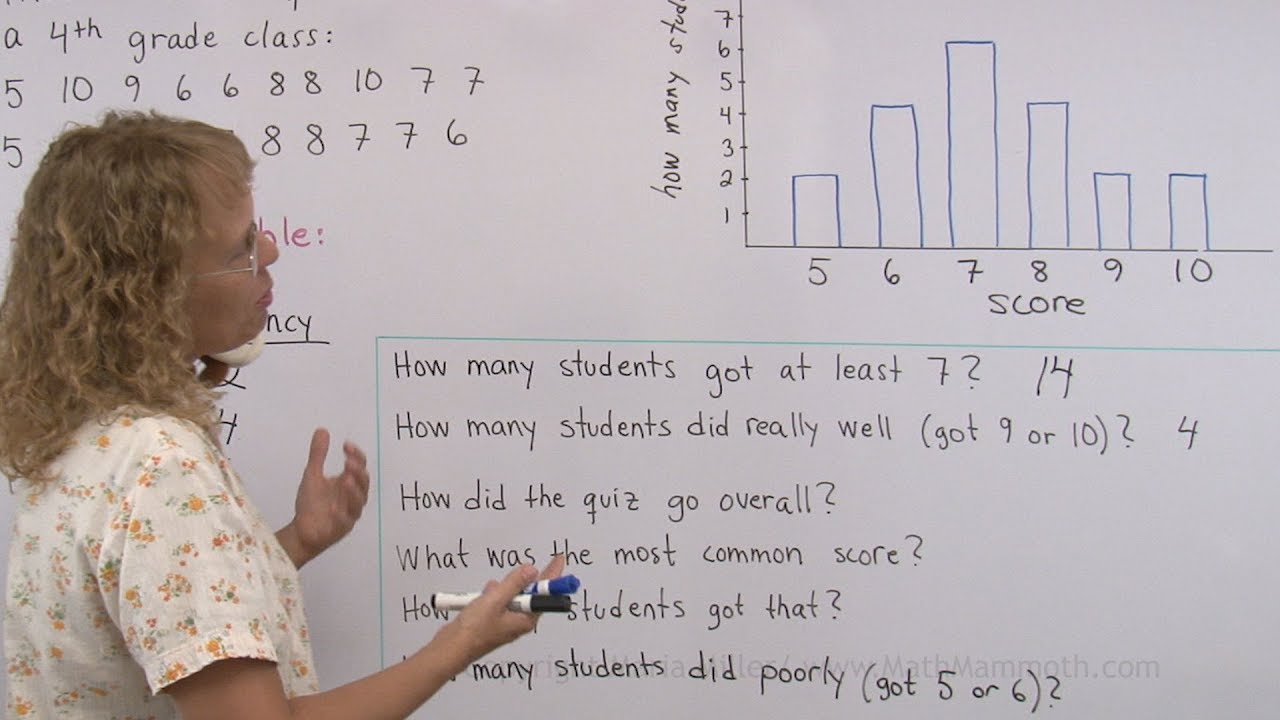 a 4th grade class:
5 10 9 6 6 8 8 10 7 7
5 8 8 7 7 6
ncy
2
4
how many
7
6
5
4
3
2
1
5 6 7 8 9 10
score
How many students got at least 7? 14
How many students did really well (got 9 or 10)? 4
How did the quiz go overall?
What was the most common score?
How students got that?
many students did poorly (got 5 or 6)?
Miller / www.MathMammoth.com